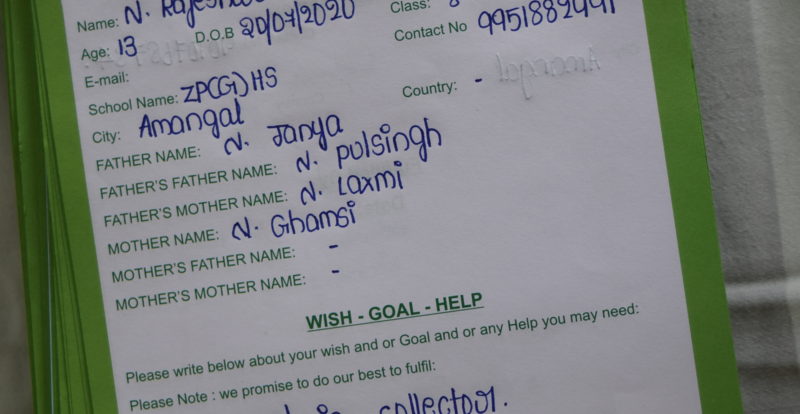 Name: N.
Age: 13 D.O.B 20/07/2020 Class:
Contact No
E-mail:
School Name: ZP(G)HS
City: Amangal Country: -
FATHER NAME: N. Janya
FATHER'S FATHER NAME: N. pulsingh
FATHER'S MOTHER NAME: N. Laxmi
MOTHER NAME: N. Ghamsi
MOTHER'S FATHER NAME: -
MOTHER'S MOTHER NAME: -
WISH - GOAL - HELP
Please write below about your wish and or Goal and or any Help you may need:
Please Note : we promise to do our best to fulfil:
collector.